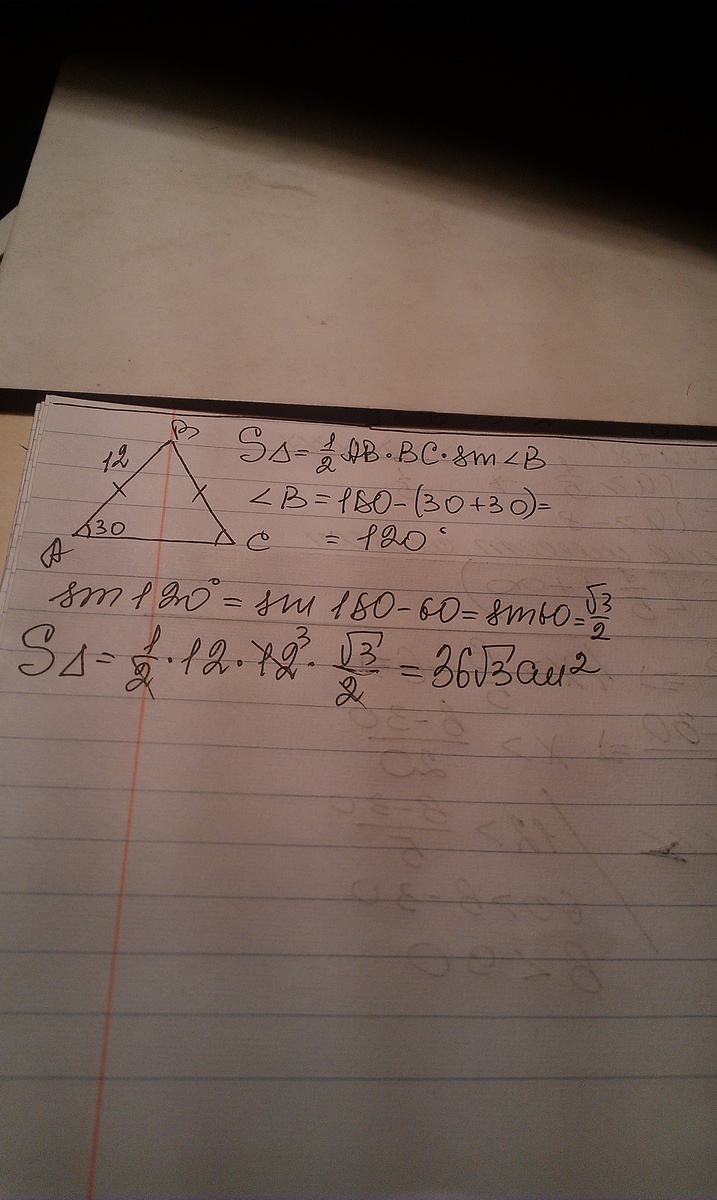 B
12
30
A
C
S△ = 1/2 AB · BC · sin ∠B
∠B = 180 - (30 + 30) =
= 120°
sin 120° = sin 180 - 60 = sin 60 = √3/2
S△ = 1/2 · 12 · 12³ · √3/2 = 36√3 см²